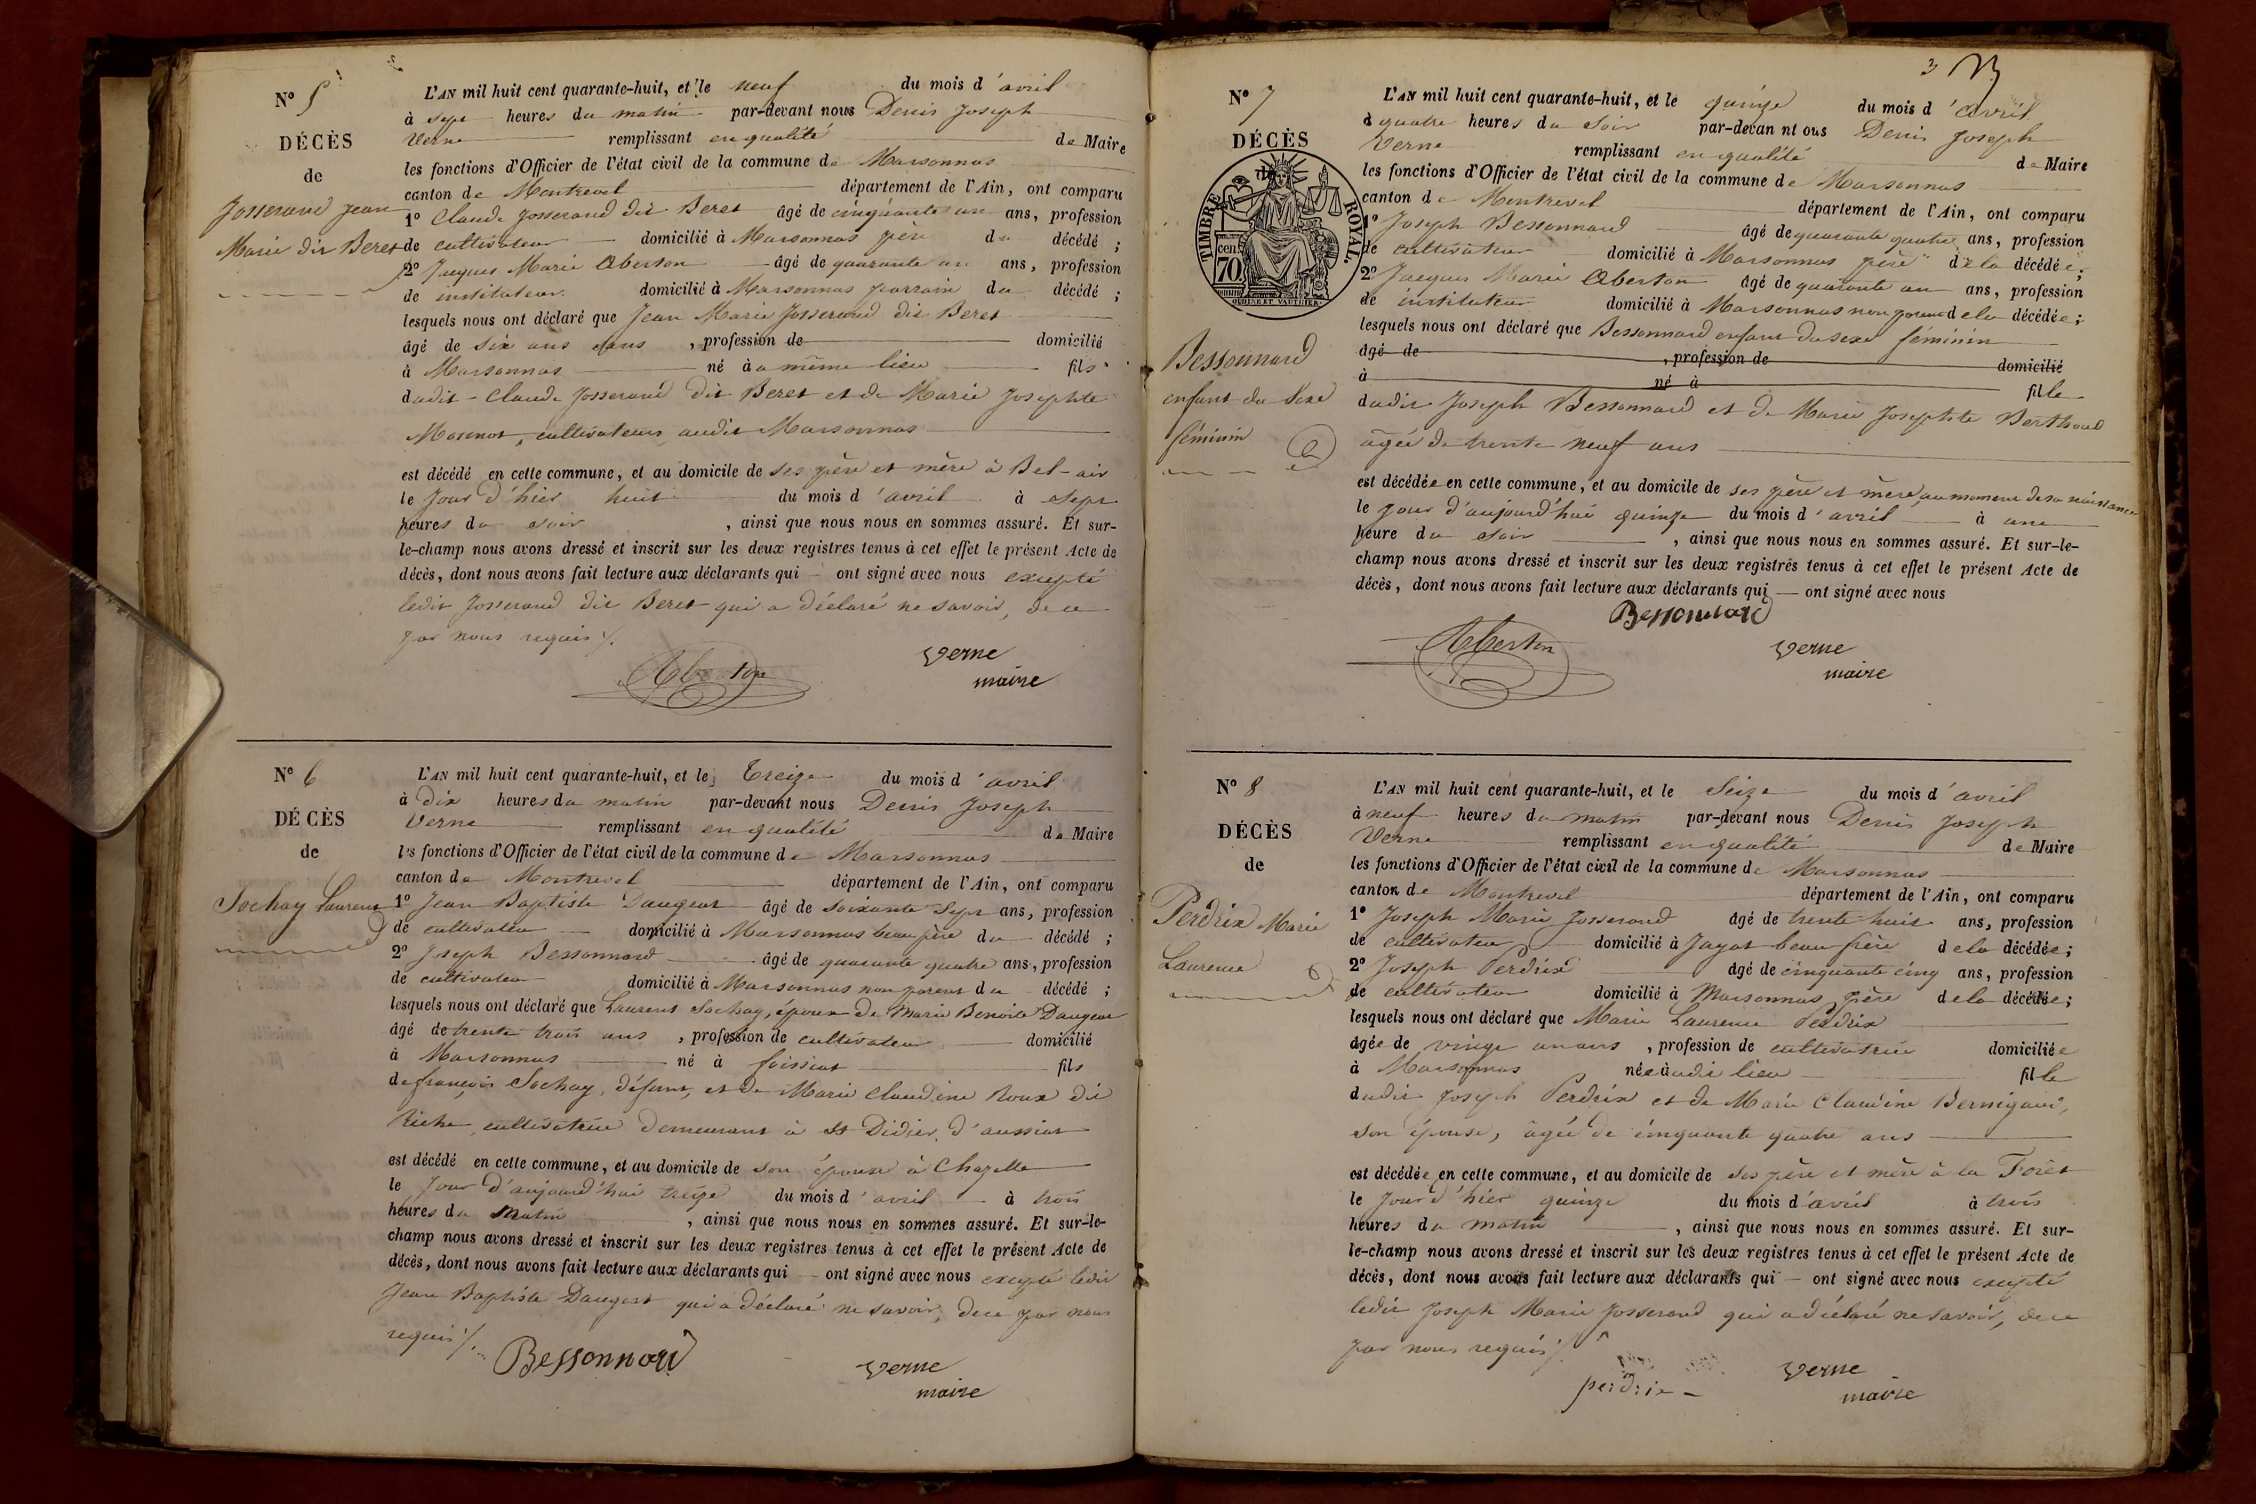 N° 5
DÉCÈS
de
Josserand Jean
Marie dit Beret
L'AN mil huit cent quarante-huit, et le neuf du mois d'avril
à sept heures du matin par-devant nous Denis Joseph
Verne remplissant en qualité de Maire
les fonctions d'Officier de l'état civil de la commune de Marsonnas
canton de Montrevel département de l'Ain, ont comparu
1° Claude Josserand dit Beret âgé de cinquante un ans, profession
de cultivateur domicilié à Marsonnas père du décédé ;
2° Jacques Marie Aberton âgé de quarante un ans, profession
de instituteur domicilié à Marsonnas parrain du décédé ;
lesquels nous ont déclaré que Jean Marie Josserand dit Beret
âgé de six ans , profession de domicilié
à Marsonnas né au même lieu fils
dudit Claude Josserand dit Beret et de Marie Josephte
cultivateurs audit Marsonnas
est décédé en cette commune, et au domicile de ses père et mère à Bel-air
le jour d'hier huit du mois d'avril à sept
heures du soir , ainsi que nous nous en sommes assuré. Et sur-
le-champ nous avons dressé et inscrit sur les deux registres tenus à cet effet le présent Acte de
décès, dont nous avons fait lecture aux déclarants qui — ont signé avec nous excepté
ledit Josserand dit Beret qui a déclaré ne savoir, de ce
par nous requis /.
Aberton
Verne
maire
N° 6
DÉCÈS
de
Sochay Laurent
L'AN mil huit cent quarante-huit, et le treize du mois d'avril
à dix heures du matin par-devant nous Denis Joseph
Verne remplissant en qualité de Maire
les fonctions d'Officier de l'état civil de la commune de Marsonnas
canton de Montrevel département de l'Ain, ont comparu
1° Jean Baptiste Daugeat âgé de soixante sept ans, profession
de cultivateur domicilié à Marsonnas beau père du décédé ;
2° Joseph Bessonnard âgé de quarante quatre ans, profession
de cultivateur domicilié à Marsonnas non parent du décédé ;
lesquels nous ont déclaré que Laurent Sochay, époux de Marie Benoite Daugeat
âgé de trente trois ans , profession de cultivateur domicilié
à Marsonnas né à foissiat fils
de françois Sochay, défunt, et de Marie Claudine Roux dit
Riche, cultivatrice demeurant à St Didier d'aussiat
est décédé en cette commune, et au domicile de son épouse à Chazelle
le jour d'aujourd'hui treize du mois d'avril à trois
heures du matin , ainsi que nous nous en sommes assuré. Et sur-le-
champ nous avons dressé et inscrit sur les deux registres tenus à cet effet le présent Acte de
décès, dont nous avons fait lecture aux déclarants qui — ont signé avec nous excepté ledit
Jean Baptiste Daugeat qui a déclaré ne savoir, de ce par nous
requis /.
Bessonnard
Verne
maire
3
N° 7
DÉCÈS
de
TIMBRE ROYAL.
70 cen.
Bessonnard
enfant du sexe
féminin
L'AN mil huit cent quarante-huit, et le quinze du mois d'avril
à quatre heures du soir par-devan nt ous Denis Joseph
Verne remplissant en qualité de Maire
les fonctions d'Officier de l'état civil de la commune de Marsonnas
canton de Montrevel département de l'Ain, ont comparu
1° Joseph Bessonnard âgé de quarante quatre ans, profession
de cultivateur domicilié à Marsonnas père de la décédée ;
2° Jacques Marie Aberton âgé de quarante un ans, profession
de instituteur domicilié à Marsonnas non parent de la décédée ;
lesquels nous ont déclaré que Bessonnard enfant du sexe féminin
âgé de , profession de domicilié
à né à fille
dudit Joseph Bessonnard et de Marie Josephte Berthoud
âgée de trente neuf ans
est décédée en cette commune, et au domicile de ses père et mère, au moment de sa naissance
le jour d'aujourd'hui quinze du mois d'avril à une
heure du soir , ainsi que nous nous en sommes assuré. Et sur-le-
champ nous avons dressé et inscrit sur les deux registres tenus à cet effet le présent Acte de
décès, dont nous avons fait lecture aux déclarants qui — ont signé avec nous
Bessonnard
Aberton
Verne
maire
N° 8
DÉCÈS
de
Perdrix Marie
Laurence
L'AN mil huit cent quarante-huit, et le seize du mois d'avril
à neuf heures du matin par-devant nous Denis Joseph
Verne remplissant en qualité de Maire
les fonctions d'Officier de l'état civil de la commune de Marsonnas
canton de Montrevel département de l'Ain, ont comparu
1° Joseph Marie Josserand âgé de trente huit ans, profession
de cultivateur domicilié à Jayat beau frère de la décédée ;
2° Joseph Perdrix âgé de cinquante cinq ans, profession
de cultivateur domicilié à Marsonnas père de la décédée ;
lesquels nous ont déclaré que Marie Laurence Perdrix
âgée de vingt un ans , profession de cultivatrice domiciliée
à Marsonnas née audit lieu fille
dudit Joseph Perdrix et de Marie Claudine Bernigaud,
son épouse, âgée de cinquante quatre ans
est décédée en cette commune, et au domicile de ses père et mère à la Forêt
le jour d'hier quinze du mois d'avril à trois
heures du matin , ainsi que nous nous en sommes assuré. Et sur-
le-champ nous avons dressé et inscrit sur les deux registres tenus à cet effet le présent Acte de
décès, dont nous avons fait lecture aux déclarants qui — ont signé avec nous excepté
ledit Joseph Marie Josserand qui a déclaré ne savoir, de ce
par nous requis /.
perdrix
Verne
maire